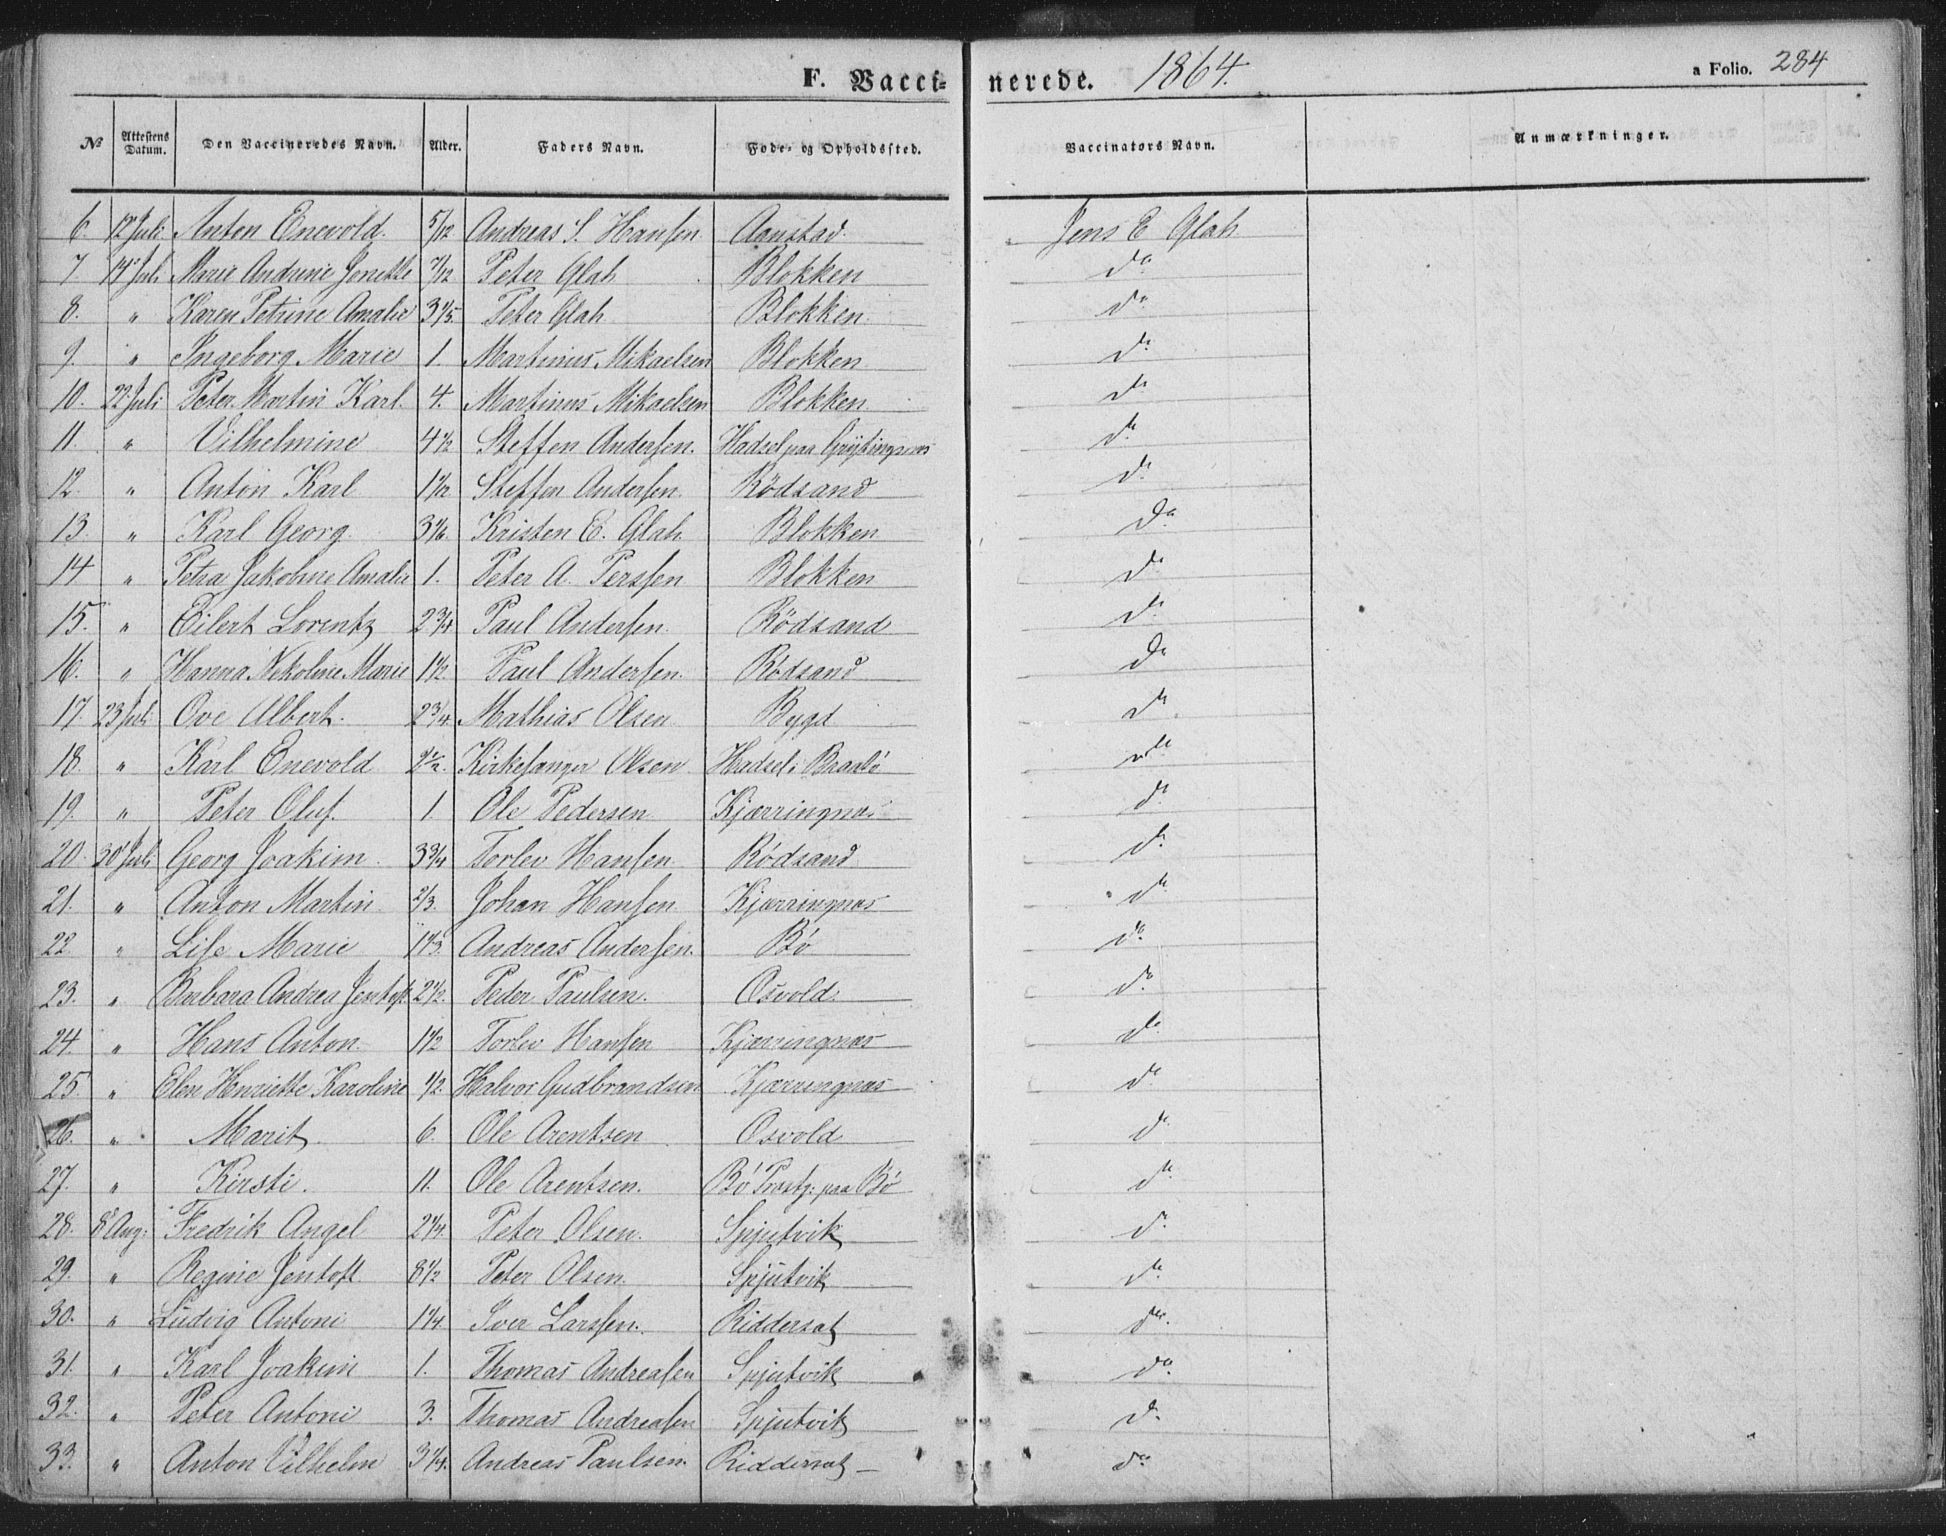 F. Vaccinerede. 1864. a Folio. 284
No Attestens Datum. Den Vaccineredes Navn. Alder. Faders Navn. Føde- og Opholdssted. Vaccinators Navn. Anmærkninger.
6. 12 Juli Anton Enevold. 5/12 Andreas S. Hansen Aanstad. Jens E Glah
7 14 Juli Marie Andrine Jonette 7/12 Peter Glah Blokken do
8. " Karen Petrine Amalie 3 1/5. Peter Glah Blokken. do
9. " Ingeborg Marie 1. Martinus Mikaelsen Blokken do
10. 22 Juli Peter Martin Karl. 4. Martinus Mikaelsen Blokken. do
11. " Vilhelmine 4 1/2 Steffen Andersen. Hadsel paa do
12. " Anton Karl 1 1/2 Steffen Andersen. Rödsand do
13. " Karl Georg. 3 1/6. Kristen E. Glah Blokken do
14 " Petra Jakobine Amalie 1. Peter A. Perssen Blokken do
15. " Eilert Lorentz 2 3/4 Paul Andersen. Rödsand do
16. " Hanna Nikoline Marie 1 1/2. Paul Andersen. Rödsand do
17. 23 Juli Ove Albert. 2 3/4 Mathias Olsen Bygd do
18. " Karl Enevold 2 1/2. Kirkesanger Olsen Hadsel: do
19. " Peter Oluf. 1. Ole Pedersen Kjærringnæs do
20. 30 Juli Georg Joakim. 3 3/4 Torlev Hansen. Rödsand do
21. " Anton Martin 2/3. Johan Hansen Kjærringnæs do
22. " Lise Marie 1 1/3. Andreas Andersen. Bö do
23. " Barbara Andrea Jentoft 2 1/2. Peder Paulsen. Osvold do
24. " Hans Anton 1 1/2 Torlev Hansen Kjærringnæs do
25. " Elen Henriette Karoline 1/2. Halvor Gudbrandsen Kjærringnæs do
26. " Marit. 6. Ole Arentsen Osvold do
27. " Kirsti. 11. Ole Arentsen. Bö Præstg: paa Bö do
28. 8 Aug: Fredrik Angel 2 1/4. Peter Olsen. Spjutvik do
29. " Regine Jentoft 8 1/2 Peter Olsen. Spjutvik do
30. " Ludvig Antoni 1 1/4. Iver Larssen. Riddersat do
31. " Karl Joakim 1. Thomas Andreasen Spjutvik do
32. " Peter Antoni 3. Thomas Andreasen Spjutvik do
33. " Anton Vilhelm 3 1/4. Andreas Paulsen. Riddersat do